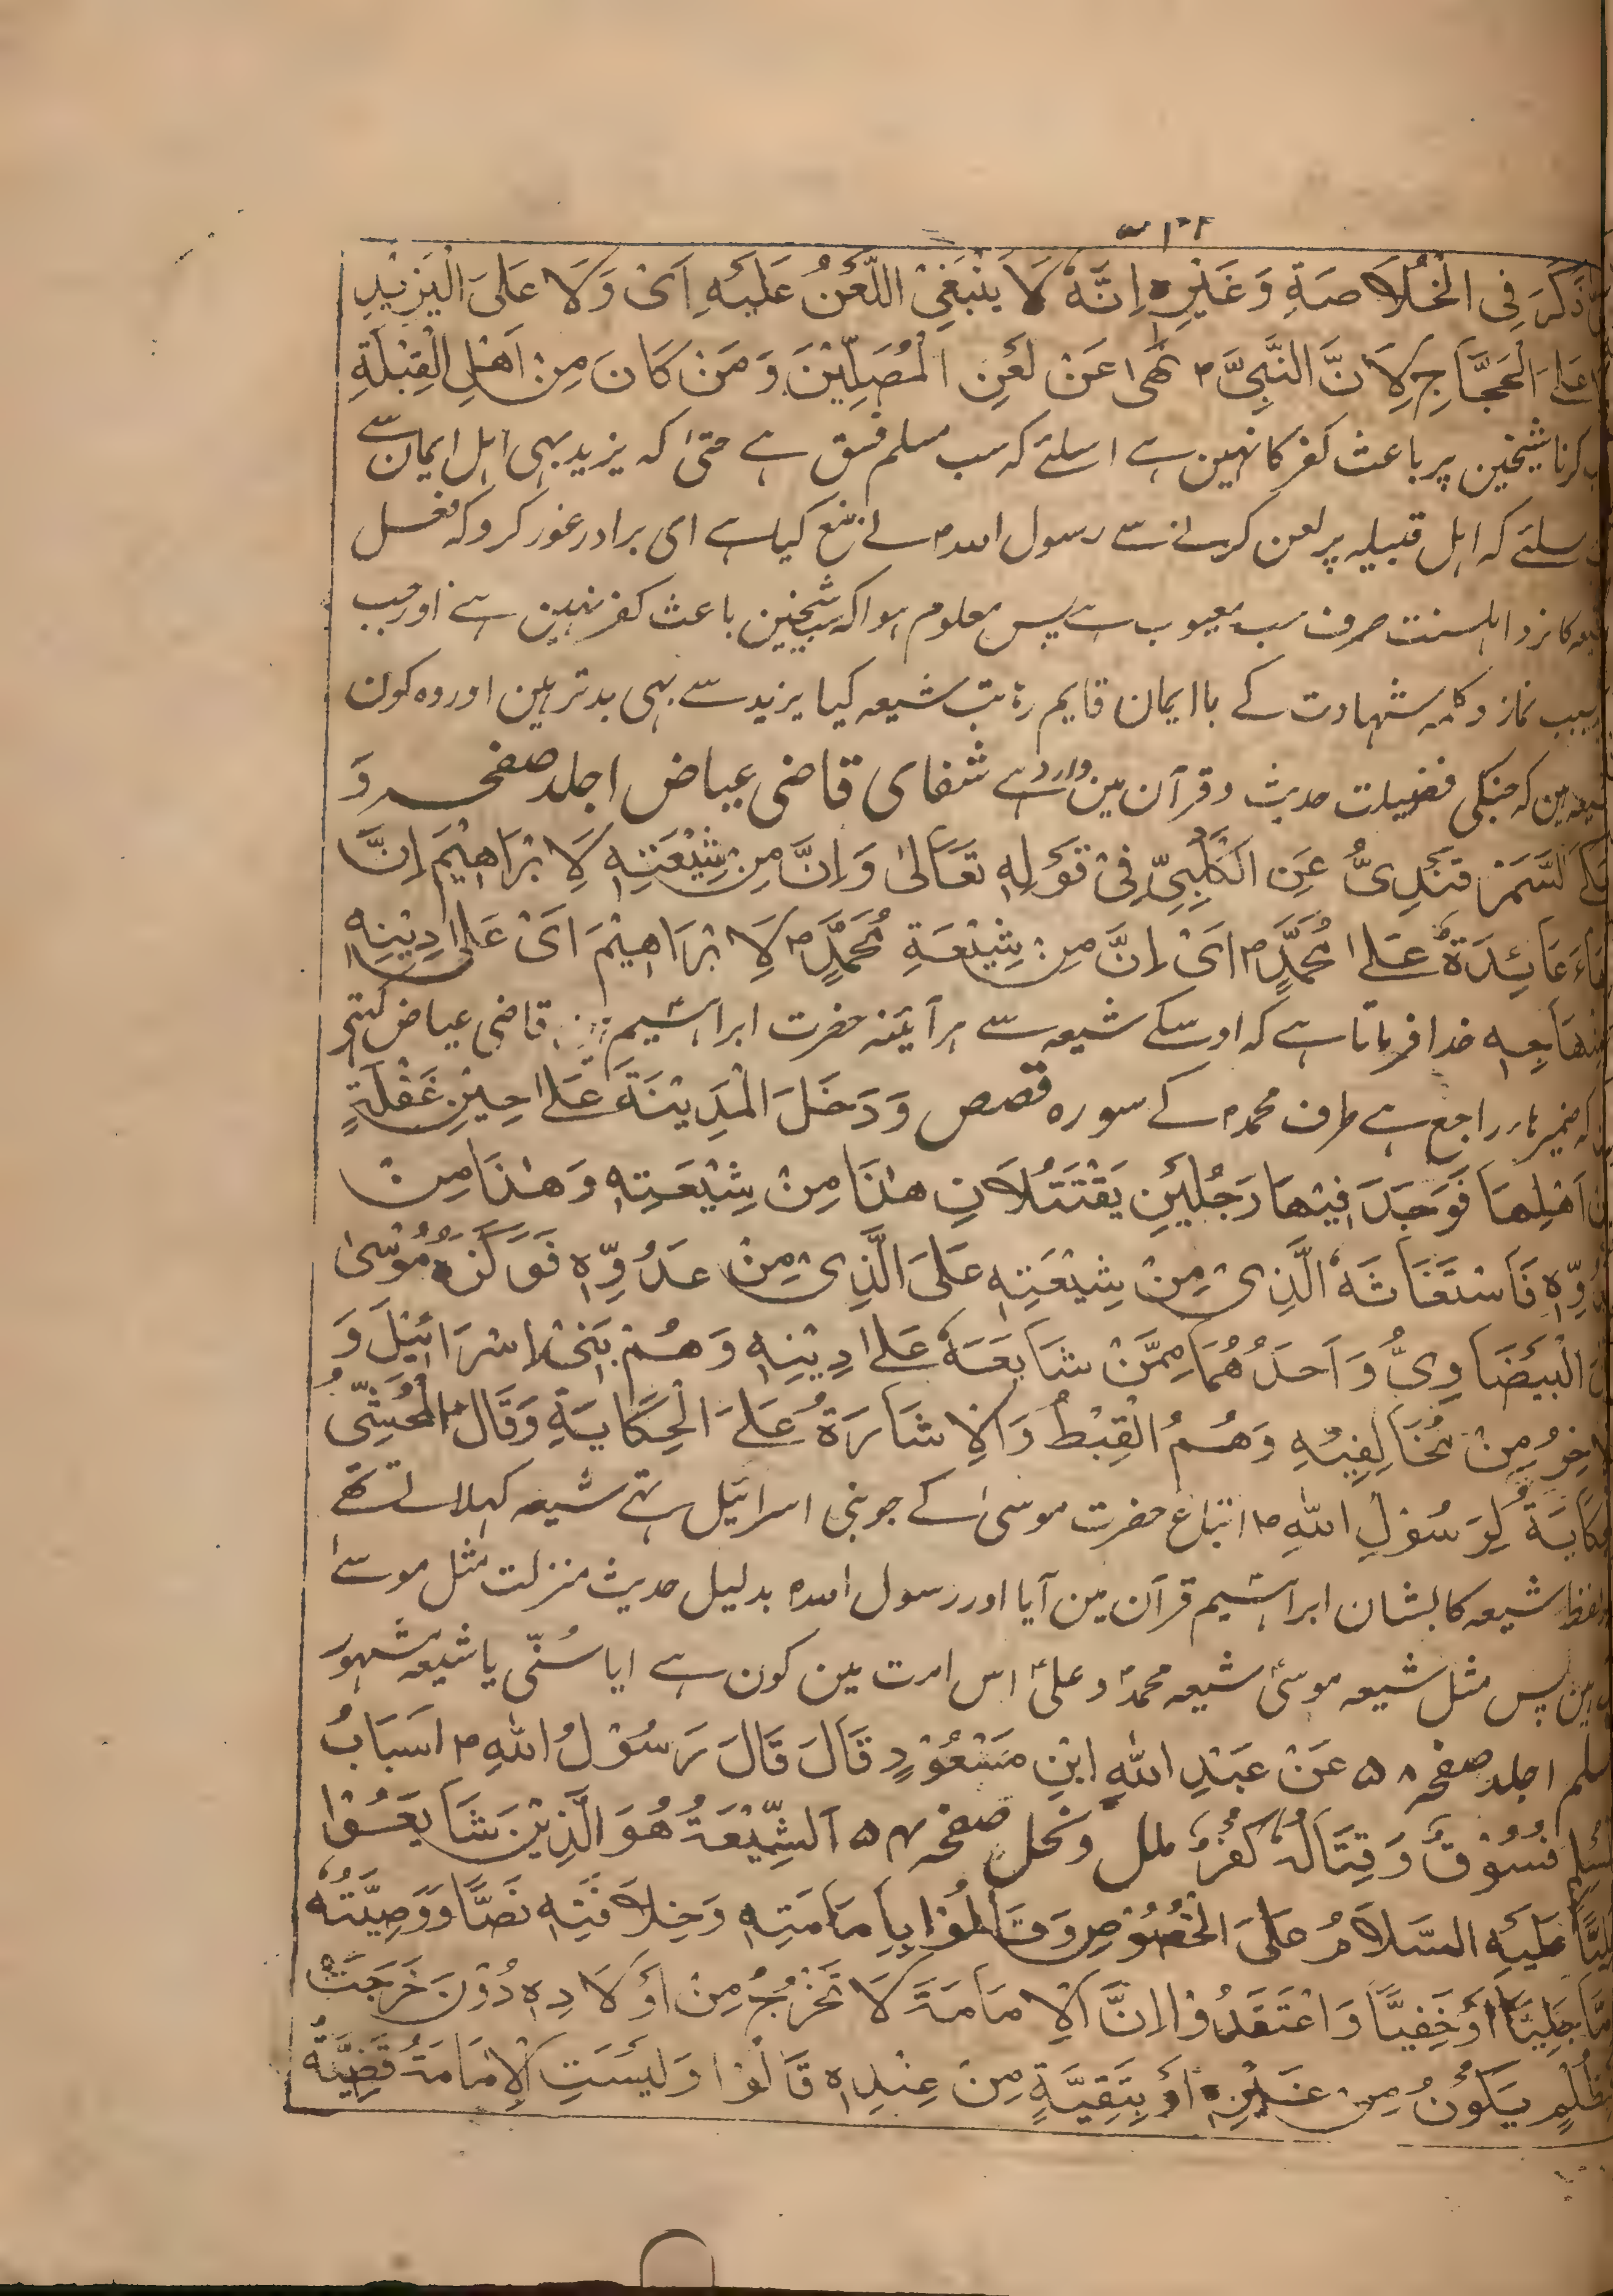 ذَكَرَ فِى الْخُلَاصَةِ وَغَيْرِهٖ اِنَّهٗ لَا يَنْبَغِىْ اللَّعْنُ عَلَيْهِ اَىْ وَلَا عَلَى الْيَزِيْدِ
عَلَى الْحَجَّاجِ لِاَنَّ النَّبِىَّ ؐ نَهٰى عَنْ لَعْنِ الْمُصَلِّيْنَ وَمَنْ كَانَ مِنْ اَهْلِ الْقِبْلَةِ
کرنا شیخین پر باعث کفر کا نہین ہے اسلئے کہ سب مسلم فسق ہے حتیٰ کہ یزید بہی اہل ایمان سے
سلئے کہ اہل قبیلہ پر لعن کرنے سے رسول اللہ ؐ نے منع کیا ہے ای برادر غور کرو کہ فعل
کا نزد اہلسنت صرف سب معیوب ہے پس معلوم ہوا کہ سب شیخین باعث کفر نہین ہے اور جب
بسبب نماز و کلمہ شہادت کے با ایمان قایم رہٗ تب شیعہ کیا یزید سے بہی بدتر ہین اور وہ کون
ہین کہ جنکی فضیلت حدیث و قرآن مین وارد ہے شفای قاضی عیاض ا جلد صفحہ وَ
السَّمَرْقَنْدِىُّ عَنِ الْكَلْبِىِّ فِىْ قَوْلِهٖ تَعَالىٰ وَاِنَّ مِنْ شِيْعَتِهٖ لَاِ بْرَاهِيْمَ اِنَّ
عَائِدَةٌ عَلٰى مُحَمَّدٍ ؐ اَىْ اِنَّ مِنْ شِيْعَةِ مُحَمَّدٍ ؐ لَاِ بْرَاهِيْمَ اَىْ عَلٰى دِيْنِهٖ
خدا فرماتا ہے کہ اوسکے شیعہ سے ہر آیئنہ حضرت ابراہیمؑ قاضی عیاض کہتے
کہ ضمیر ہا راجع ہے طرف محمدؐ کے سورہ قصص وَدَخَلَ الْمَدِيْنَةَ عَلٰى حِيْنِ غَفْلَةٍ
اَهْلِهَا فَوَجَدَ فِيْهَا رَجُلَيْنِ يَقْتَتِلَانِ هٰذَا مِنْ شِيْعَتِهٖ وَهٰذَا مِنْ
فَاسْتَغَاثَهُ الَّذِىْ مِنْ شِيْعَتِهٖ عَلَى الَّذِىْ مِنْ عَدُوِّهٖ فَوَكَزَهٗ مُوْسٰى
الْبَيْضَاوِىُّ وَاَحَدُهُمَا مِمَّنْ شَايَعَهٗ عَلٰى دِيْنِهٖ وَهُمْ بَنِىْ اِسْرَائِيْلَ وَ
مِنْ مُخَالِفِيْهِ وَهُمُ الْقِبْطُ وَالْاِشَارَةُ عَلَى الْحِكَايَةِ وَقَالَ الْمُحَشِّىُّ
لِرَسُوْلِ اللهِ ؐ اتباع حضرت موسیٰ کے جو بنی اسرائیل تہے شیعہ کہلاتے تھے
لفظ شیعہ کا بشان ابراہیم قرآن مین آیا اور رسول اللہؐ بدلیل حدیث منزلت مثل موسےٰ
ہین پس مثل شیعہ موسیٰؑ شیعہ محمدؐ و علیؑ اس امت مین کون ہے ایا سُنّی یا شیعہ مشہور
ا جلد صفحہ ۵۸ عَنْ عَبْدِ اللهِ ابْنِ مَسْعُوْدٍ قَالَ قَالَ رَسُوْلُ اللهِ ؐ اسَبَابُ
فُسُوْقٌ وَقِتَالُهٗ كُفْرٌ ملل ونحل صفحہ ۵۴ اَلشِّيْعَةُ هُوَ الَّذِيْنَ شَايَعُوْا
عَلَيْهِ السَّلَامُ عَلَى الْخُصُوْصِ وَقَالُوْا بِاِمَامَتِهٖ وَخِلَافَتِهٖ نَصًّا وَوَصِيَّتُهٗ
جَلِيًّا اَوْ خَفِيًّا وَاعْتَقَدُوْا اِنَّ الْاِمَامَةَ لَا تَخْرُجُ مِنْ اَوْلَادِهٖ دُوْنَ خَرَجَتْ
يَكُوْنُ مِنْ غَيْرِهٖ اَوْ بِتَقِيَّةٍ مِنْ عِنْدِهٖ قَالُوْا وَلَيْسَتِ الْاِمَامَةُ قَضِيَّةُ